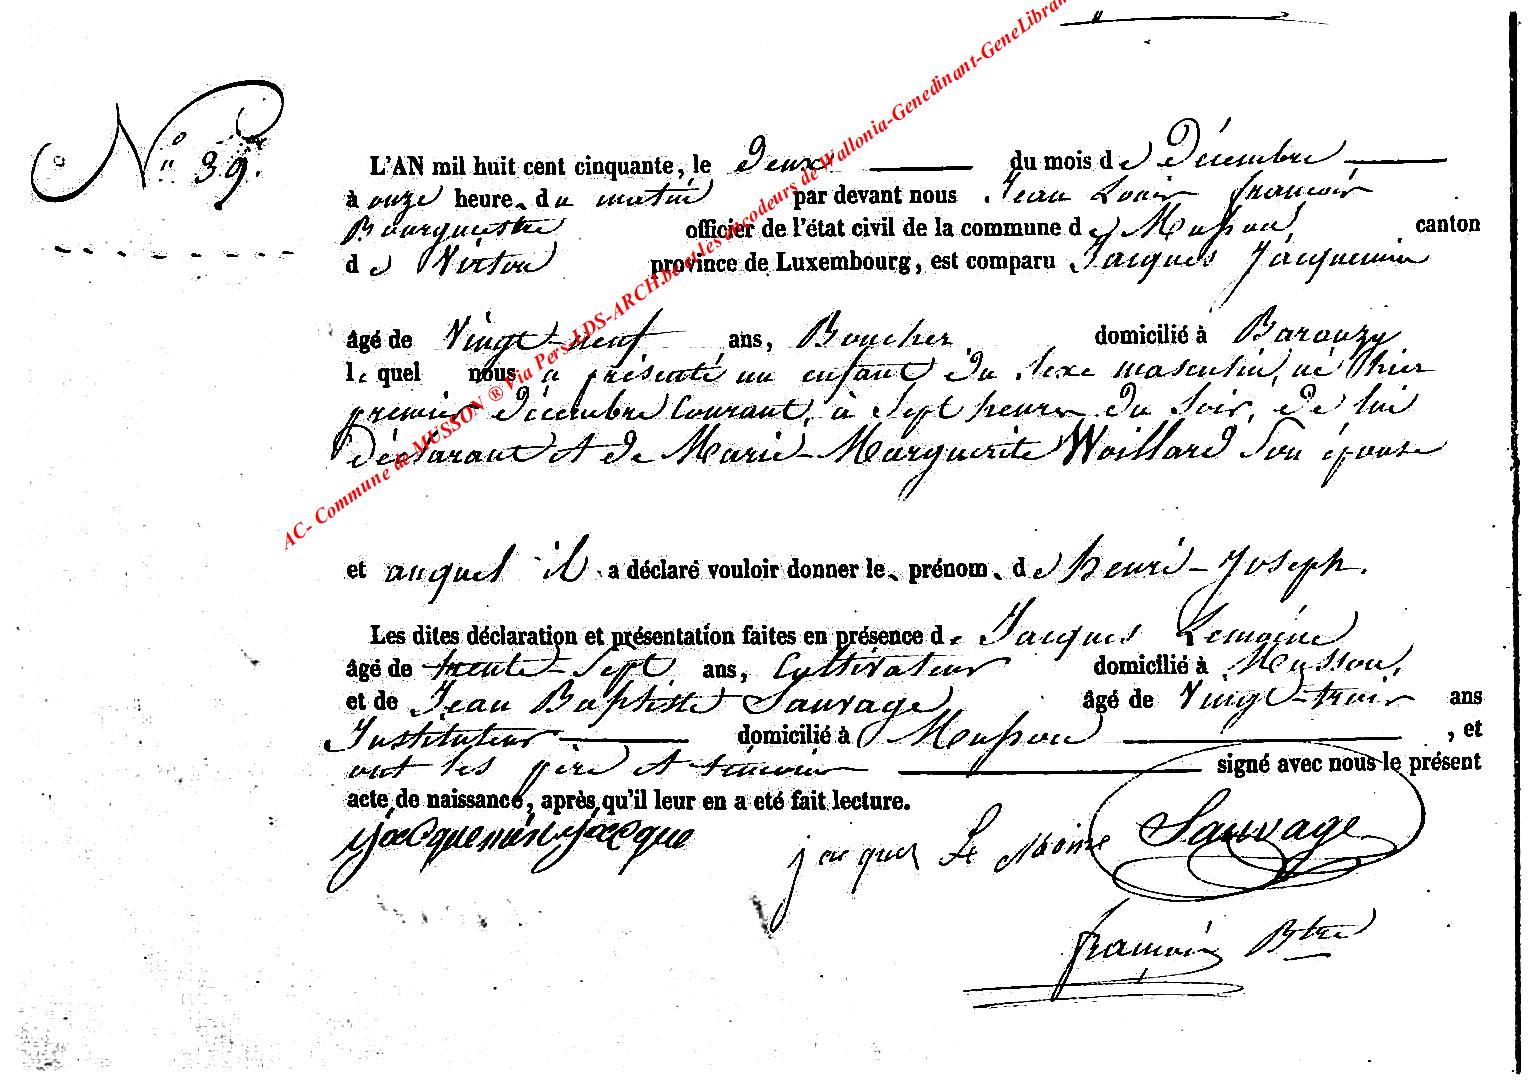 N° 39.
L'AN mil huit cent cinquante, le deux du mois de Décembre
à onze heure, du matin par devant nous Jean Louis françois
Bourguestre officier de l'état civil de la commune de Musson, canton
de Virton province de Luxembourg, est comparu Jacques Jacquemin
âgé de Vingt-neuf ans, Boucher domicilié à Baronzy
lequel nous a présenté un enfant du sexe masculin, né hier
premier décembre Courant, à Sept heures du Soir, de lui
déclarant et de Marie-Marguerite Woillard Son épouse
et auquel il a déclaré vouloir donner le, prénom, de henri-Joseph.
Les dites déclaration et présentation faites en présence de Jacques Lemoine
âgé de trente-Sept ans, Cultivateur domicilié à Musson,
et de Jean Baptiste Sauvage âgé de Vingt-trois ans
Instituteur domicilié à Musson, et
ont les père et témoins signé avec nous le présent
acte de naissance, après qu'il leur en a eté fait lecture.
jacquemin jacque jacques Le Moine Sauvage
françois Btre
AC- Commune de MUSSON ® Via Pers-LDS-ARCH.be et les encodeurs de Wallonia-Genedinant-GeneLibran